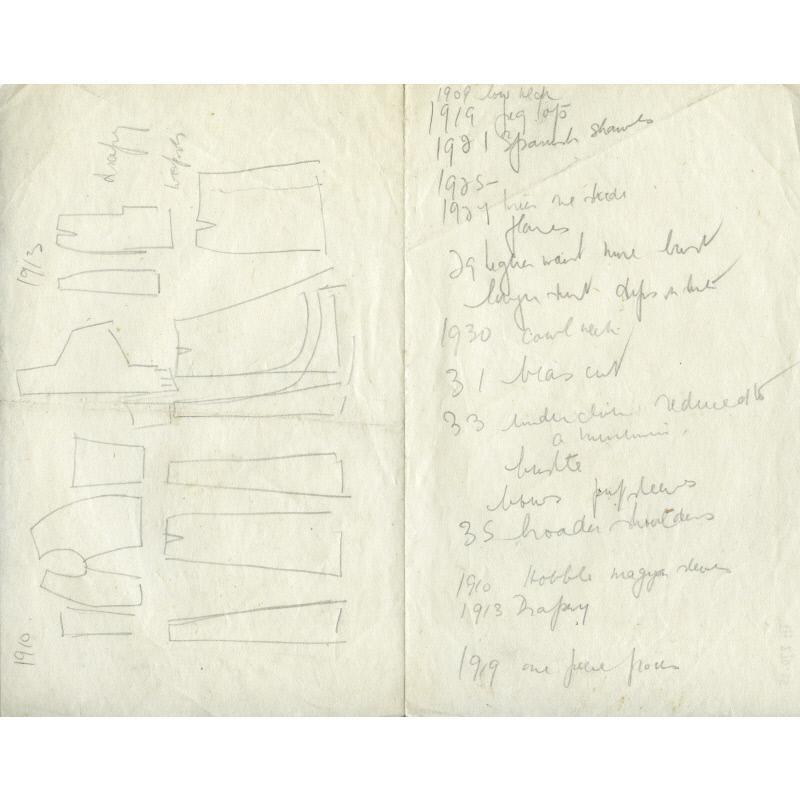 1913
Drapery
1910
1908 low neck
1919 peg tops
1921 Spanish shawls
1925-
1927
flares
29 higher waist more bust
longer skirt dips
1930 cowl neck
31 bias cut
33 reduced to
a minimum.
bustle
bows puf sleeves
35 broader shoulders
1910 Hobble magyar sleeves
1913 Drapery
1919 one piece frocks